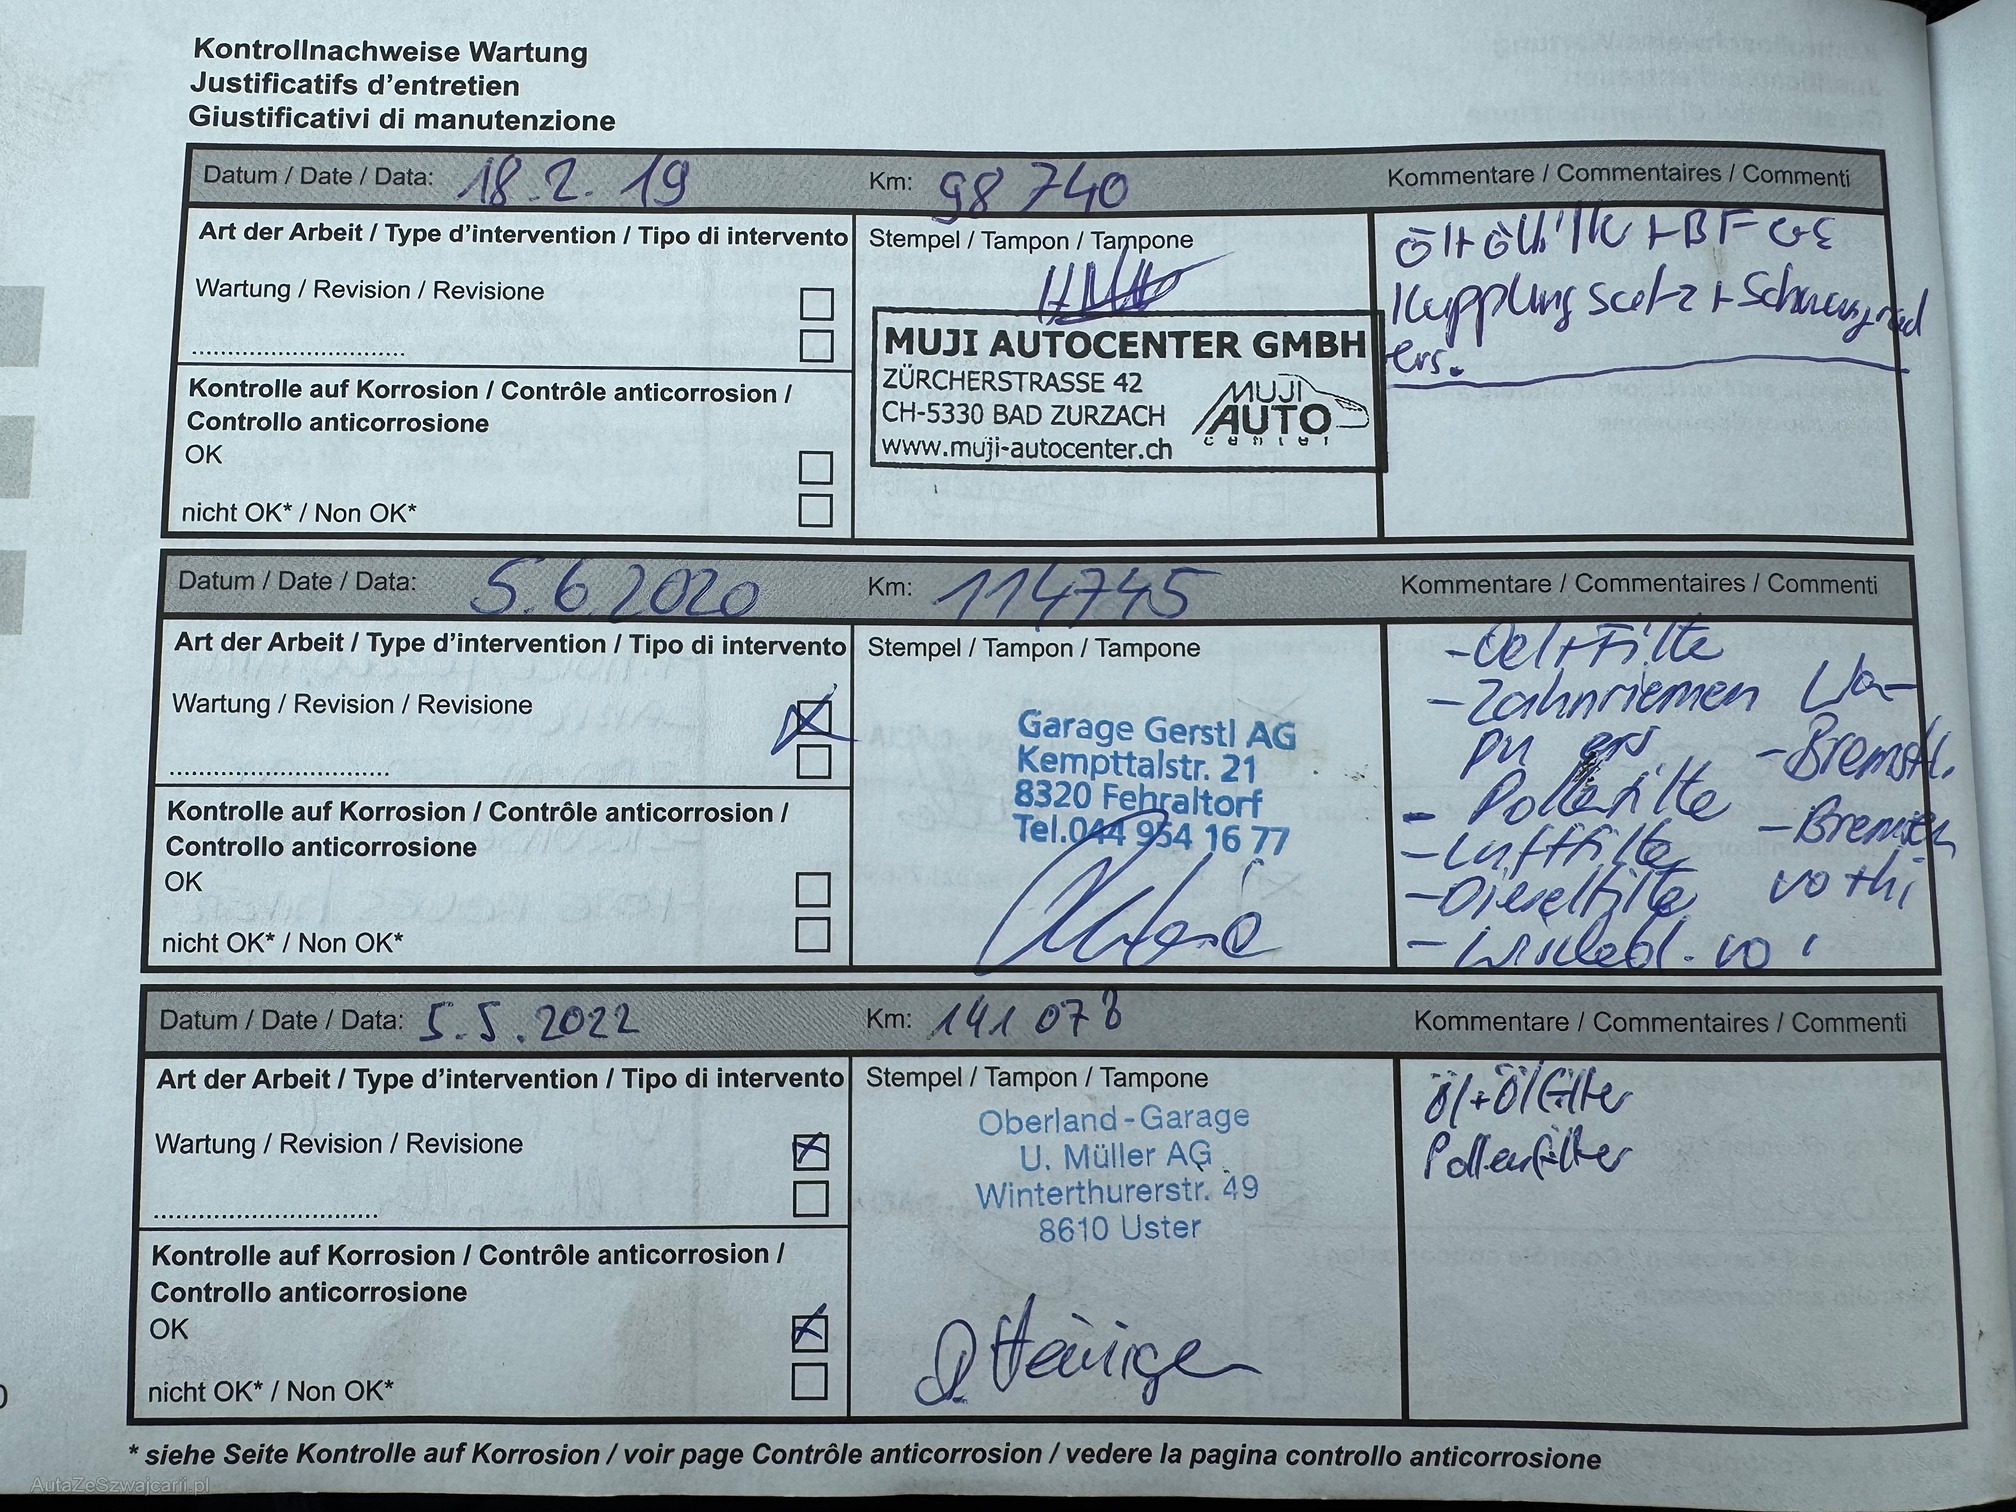 Kontrollnachweise Wartung
Justificatifs d'entretien
Giustificativi di manutenzione
Datum / Date / Data: 18.2.19 Km: 98 740 Kommentare / Commentaires / Commenti
Art der Arbeit / Type d'intervention / Tipo di intervento
Wartung / Revision / Revisione
Kontrolle auf Korrosion / Contrôle anticorrosion /
Controllo anticorrosione
OK
nicht OK* / Non OK*
Stempel / Tampon / Tampone
MUJI AUTOCENTER GMBH
ZÜRCHERSTRASSE 42
CH-5330 BAD ZURZACH
www.muji-autocenter.ch
MUJI
AUTO
center
Kupplungsatz + Schwungrad
ers.
Datum / Date / Data: 5.6.2020 Km: 114745 Kommentare / Commentaires / Commenti
Art der Arbeit / Type d'intervention / Tipo di intervento
Wartung / Revision / Revisione
Kontrolle auf Korrosion / Contrôle anticorrosion /
Controllo anticorrosione
OK
nicht OK* / Non OK*
Stempel / Tampon / Tampone
Garage Gerstl AG
Kempttalstr. 21
8320 Fehraltorf
Tel.044 954 16 77
- Oel+Filte
- Zahnriemen Wa-
pu ers
- Bremsfl.
- Pollenfilte
- Bremsen
- Luftfilte
vo+hi
- Dieselfilte
- Wischebl. vo
Datum / Date / Data: 5.5.2022 Km: 141 078 Kommentare / Commentaires / Commenti
Art der Arbeit / Type d'intervention / Tipo di intervento
Wartung / Revision / Revisione
Kontrolle auf Korrosion / Contrôle anticorrosion /
Controllo anticorrosione
OK
nicht OK* / Non OK*
Stempel / Tampon / Tampone
Oberland-Garage
U. Müller AG
Winterthurerstr. 49
8610 Uster
Öl+Ölfilter
Pollenfilter
* siehe Seite Kontrolle auf Korrosion / voir page Contrôle anticorrosion / vedere la pagina controllo anticorrosione
AutaZeSzwajcarii.pl